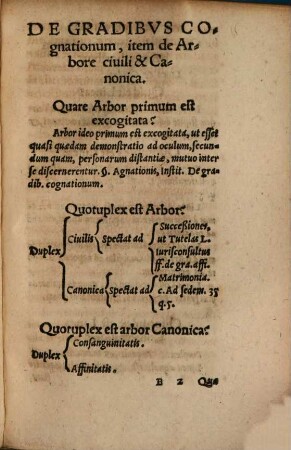 DE GRADIBVS CO-
gnationum, item de Ar-
bore ciuili & Ca-
nonica.
Quare Arbor primum est
excogitata?
Arbor ideo primum est excogitata, ut esset
quasi quædam demonstratio ad oculum, secun-
dum quam, personarum distantiæ, mutuo inter
se discernerentur. §. Agnationis, instit. De gra-
dib. cognationum.
Quotuplex est Arbor?
Duplex
Ciuilis Spectat ad
Succeßiones,
ut Tutelas L.
iurisconsultus
ff. de gra. affi.
Canonica Spectat ad
Matrimonia.
c. Ad sedem. 35
q. 5.
Quotuplex est arbor Canonica?
Duplex
Consanguinitatis.
Affinitatis.
B 2 Quæ